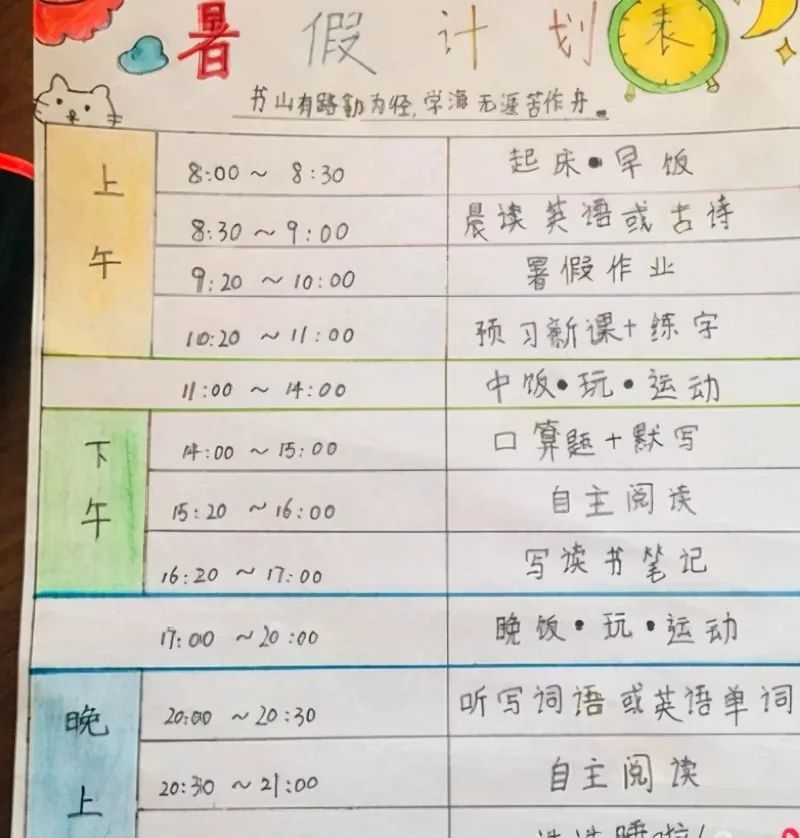 暑假计划表
书山有路勤为径,学海无涯苦作舟。
上午
8:00 ~ 8:30 起床•早饭
8:30 ~ 9:00 晨读英语或古诗
9:20 ~ 10:00 暑假作业
10:20 ~ 11:00 预习新课+练字
11:00 ~ 14:00 中饭•玩•运动
下午
14:00 ~ 15:00 口算题+默写
15:20 ~ 16:00 自主阅读
16:20 ~ 17:00 写读书笔记
17:00 ~ 20:00 晚饭•玩•运动
晚上
20:00 ~ 20:30 听写词语或英语单词
20:30 ~ 21:00 自主阅读
洗洗睡啦!